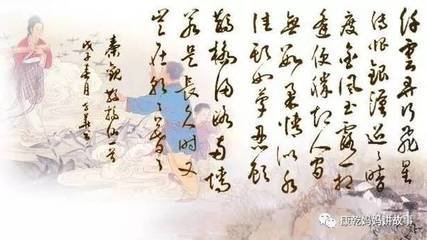 纤雲弄巧飞星
传恨银漢迢々暗
度金风玉露一相
逢便胜却人间
無数柔情似水
佳期如梦忍顾
鵲桥归路两情
若是長久时又
岂在朝々暮々
秦觀 鵲桥仙一首
戊子春月
康乾妈妈讲故事